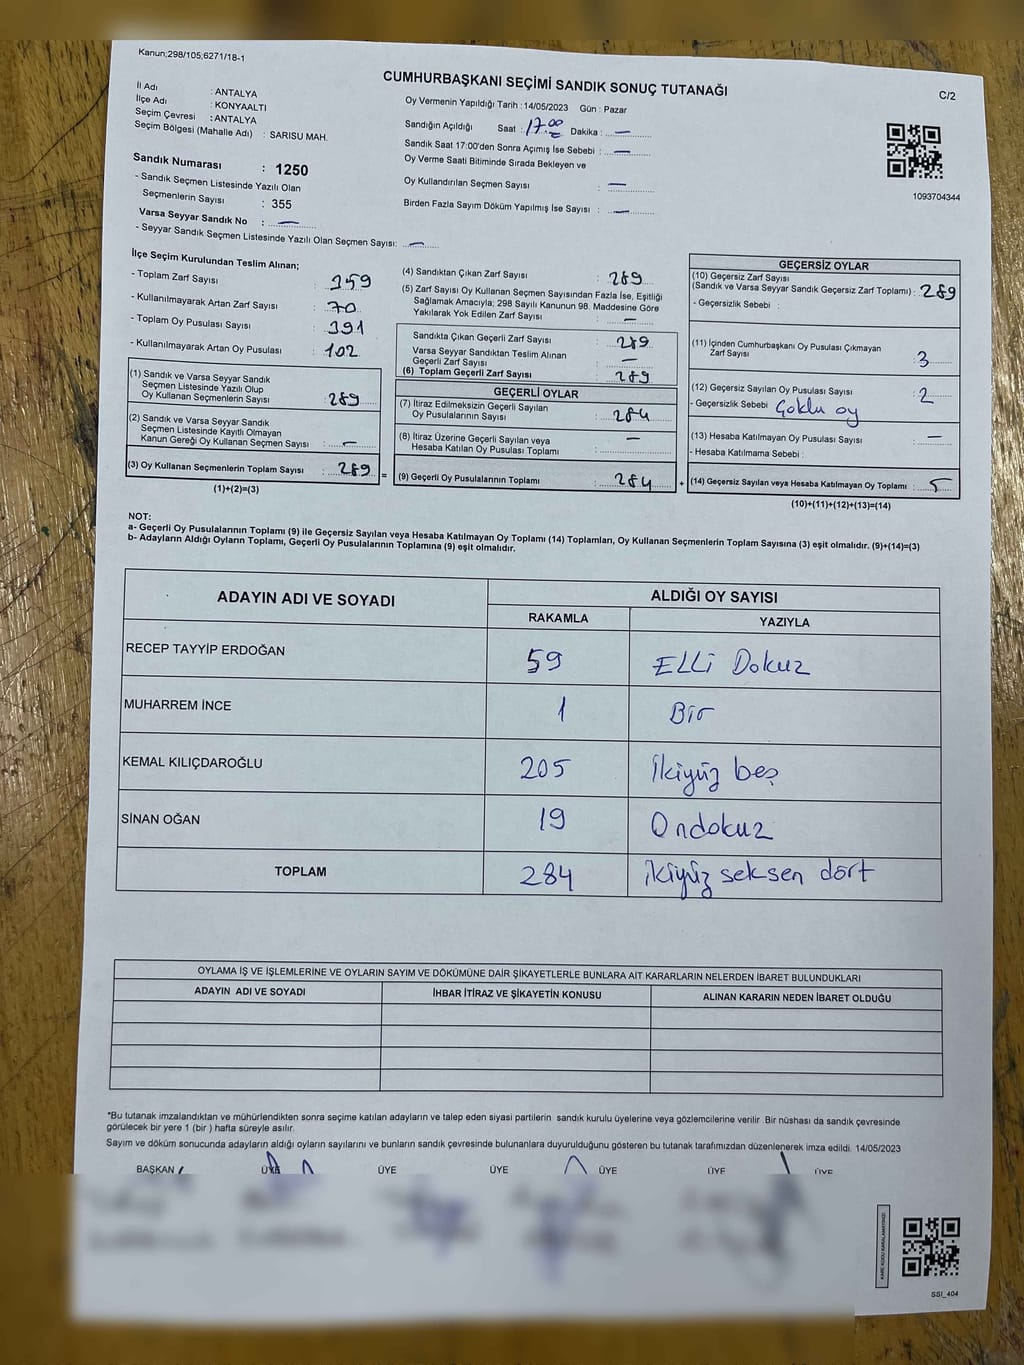 Kanun;298/105;6271/18-1
CUMHURBAŞKANI SEÇİMİ SANDIK SONUÇ TUTANAĞI
C/2
İl Adı : ANTALYA
İlçe Adı : KONYAALTI
Seçim Çevresi : ANTALYA
Seçim Bölgesi (Mahalle Adı) : SARISU MAH.
Sandık Numarası : 1250
- Sandık Seçmen Listesinde Yazılı Olan
Seçmenlerin Sayısı : 355
Varsa Seyyar Sandık No : —
- Seyyar Sandık Seçmen Listesinde Yazılı Olan Seçmen Sayısı: —
Oy Vermenin Yapıldığı Tarih : 14/05/2023 Gün : Pazar
Sandığın Açıldığı Saat : 17.00 Dakika : —
Sandık Saat 17:00'den Sonra Açımış İse Sebebi : —
Oy Verme Saati Bitiminde Sırada Bekleyen ve
Oy Kullandırılan Seçmen Sayısı : —
Birden Fazla Sayım Döküm Yapılmış İse Sayısı : —
1093704344
İlçe Seçim Kurulundan Teslim Alınan;
- Toplam Zarf Sayısı : 359
- Kullanılmayarak Artan Zarf Sayısı : 70
- Toplam Oy Pusulası Sayısı : 391
- Kullanılmayarak Artan Oy Pusulası : 102
(1) Sandık ve Varsa Seyyar Sandık
Seçmen Listesinde Yazılı Olup
Oy Kullanan Seçmenlerin Sayısı : 289
(2) Sandık ve Varsa Seyyar Sandık
Seçmen Listesinde Kayıtlı Olmayan
Kanun Gereği Oy Kullanan Seçmen Sayısı : —
(3) Oy Kullanan Seçmenlerin Toplam Sayısı : 289
(1)+(2)=(3)
(4) Sandıktan Çıkan Zarf Sayısı : 289
(5) Zarf Sayısı Oy Kullanan Seçmen Sayısından Fazla İse, Eşitliği
Sağlamak Amacıyla; 298 Sayılı Kanunun 98. Maddesine Göre
Yakılarak Yok Edilen Zarf Sayısı : —
Sandıkta Çıkan Geçerli Zarf Sayısı : 289
Varsa Seyyar Sandıktan Teslim Alınan
Geçerli Zarf Sayısı : —
(6) Toplam Geçerli Zarf Sayısı : 289
GEÇERLİ OYLAR
(7) İtiraz Edilmeksizin Geçerli Sayılan
Oy Pusulalarının Sayısı : 284
(8) İtiraz Üzerine Geçerli Sayılan veya
Hesaba Katılan Oy Pusulası Toplamı : —
= (9) Geçerli Oy Pusulalarının Toplamı : 284
GEÇERSİZ OYLAR
(10) Geçersiz Zarf Sayısı
(Sandık ve Varsa Seyyar Sandık Geçersiz Zarf Toplamı) : 289
- Geçersizlik Sebebi :
(11) İçinden Cumhurbaşkanı Oy Pusulası Çıkmayan
Zarf Sayısı : 3
(12) Geçersiz Sayılan Oy Pusulası Sayısı : 2
- Geçersizlik Sebebi Çoklu oy
(13) Hesaba Katılmayan Oy Pusulası Sayısı : —
- Hesaba Katılmama Sebebi :
+ (14) Geçersiz Sayılan veya Hesaba Katılmayan Oy Toplamı : 5
(10)+(11)+(12)+(13)=(14)
NOT:
a- Geçerli Oy Pusulalarının Toplamı (9) ile Geçersiz Sayılan veya Hesaba Katılmayan Oy Toplamı (14) Toplamları, Oy Kullanan Seçmenlerin Toplam Sayısına (3) eşit olmalıdır. (9)+(14)=(3)
b- Adayların Aldığı Oyların Toplamı, Geçerli Oy Pusulalarının Toplamına (9) eşit olmalıdır.
ADAYIN ADI VE SOYADI ALDIĞI OY SAYISI
RAKAMLA YAZIYLA
RECEP TAYYİP ERDOĞAN 59 ELLi Dokuz
MUHARREM İNCE 1 Bir
KEMAL KILIÇDAROĞLU 205 İkiyüz beş
SİNAN OĞAN 19 Ondokuz
TOPLAM 284 ikiyüz seksen dört
OYLAMA İŞ VE İŞLEMLERİNE VE OYLARIN SAYIM VE DÖKÜMÜNE DAİR ŞİKAYETLERLE BUNLARA AİT KARARLARIN NELERDEN İBARET BULUNDUKLARI
ADAYIN ADI VE SOYADI İHBAR İTİRAZ VE ŞİKAYETİN KONUSU ALINAN KARARIN NEDEN İBARET OLDUĞU
*Bu tutanak imzalandıktan ve mühürlendikten sonra seçime katılan adayların ve talep eden siyasi partilerin sandık kurulu üyelerine veya gözlemcilerine verilir. Bir nüshası da sandık çevresinde
görülecek bir yere 1 (bir ) hafta süreyle asılır.
Sayım ve döküm sonucunda adayların aldığı oyların sayılarını ve bunların sandık çevresinde bulunanlara duyurulduğunu gösteren bu tutanak tarafımızdan düzenlenerek imza edildi. 14/05/2023
BAŞKAN ÜYE ÜYE ÜYE ÜYE ÜYE ÜYE
KARE KODU KARALAMAYINIZ!
SSI_404